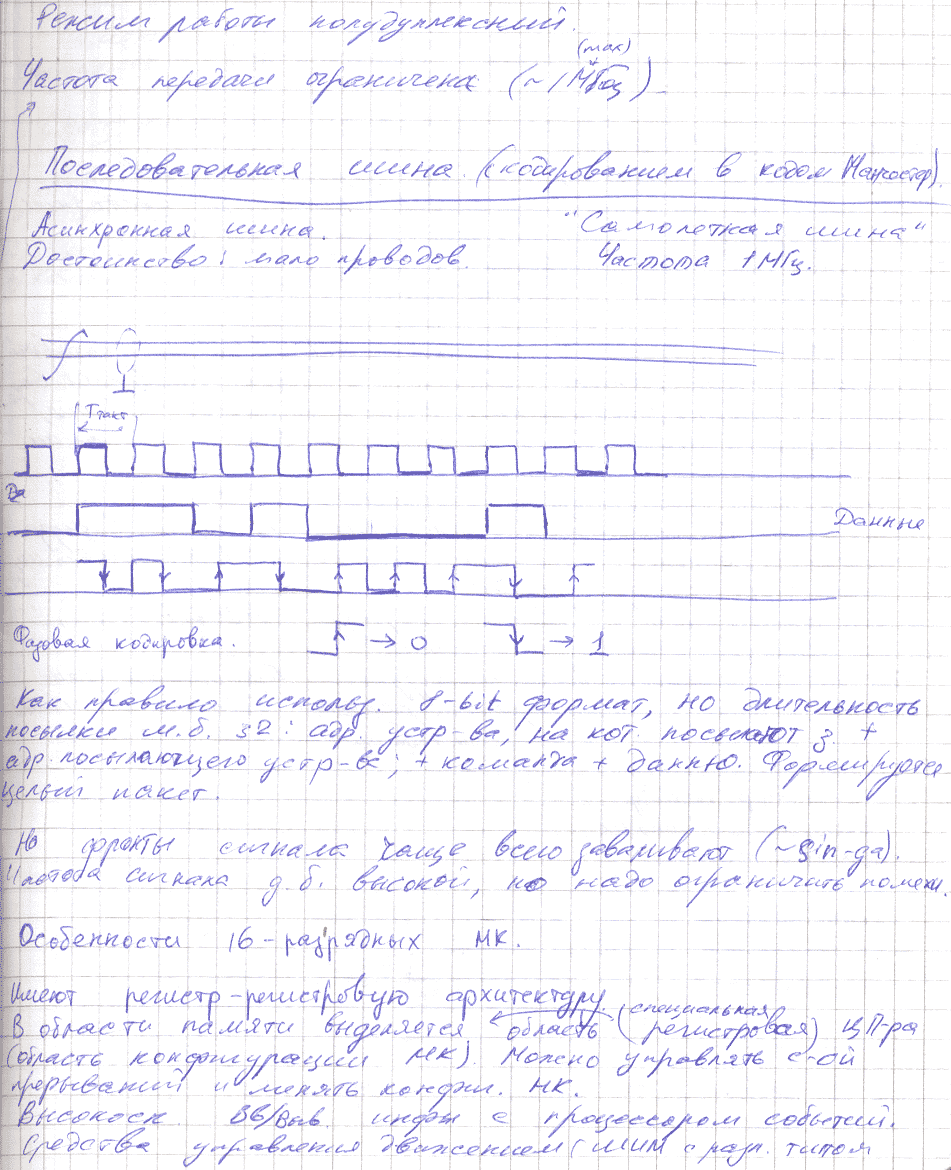 Режим работы полудуплексный.
(max)
Частота передачи ограничена (~1МГц)
Последовательная шина. (кодированием в кодом Манчестер).
Асинхронная шина. "Самолетная шина"
Достоинство: мало проводов. Частота 1МГц.
Tтакт
Да
Данные
Фазовая кодировка. → 0 → 1
Как правило использ. 8-bit формат, но длительность
посылки м.б. 32: адр. устр-ва, на кот. посылают з. +
адр. посылающего устр-ва; + команда + данные. Формируется
целый пакет.
Но фронты сигнала чаще всего заваливают (~sin-да).
Частота сигнала д.б. высокой, но надо ограничить помехи.
Особенности 16-разрядных МК.
Имеют регистр-регистровую архитектуру.
специальная
В области памяти выделяется область (регистровая) ЦП-ра
(область конфигурации МК). Можно управлять с-ой
прерываний и менять конфиг. МК.
Высокоск. Вв/Выв. инфы с процессором событий.
Средства управления движением (ШИМ с разл. типом